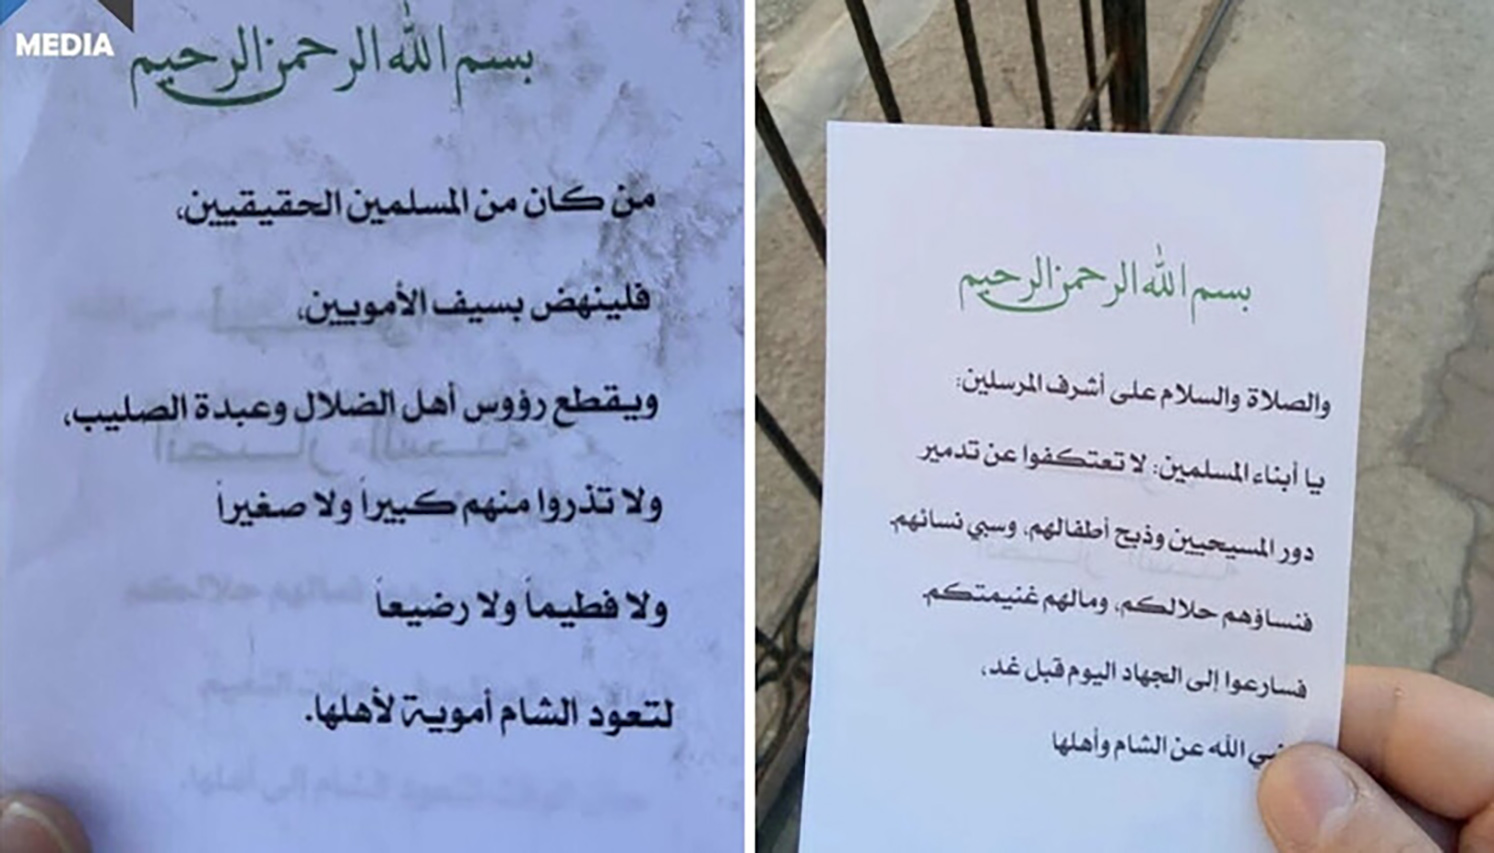 MEDIA
بسم الله الرحمن الرحيم
من كان من المسلمين الحقيقيين،
فلينهض بسيف الأمويين،
ويقطع رؤوس أهل الضلال وعبدة الصليب،
ولا تذروا منهم كبيراً ولا صغيراً
ولا فطيماً ولا رضيعاً
لتعود الشام أموية لأهلها.
بسم الله الرحمن الرحيم
والصلاة والسلام على أشرف المرسلين:
يا أبناء المسلمين: لا تعتكفوا عن تدمير
دور المسيحيين وذبح أطفالهم، وسبي نسائهم.
فنساؤهم حلالكم، ومالهم غنيمتكم.
فسارعوا إلى الجهاد اليوم قبل غد،
الله عن الشام وأهلها